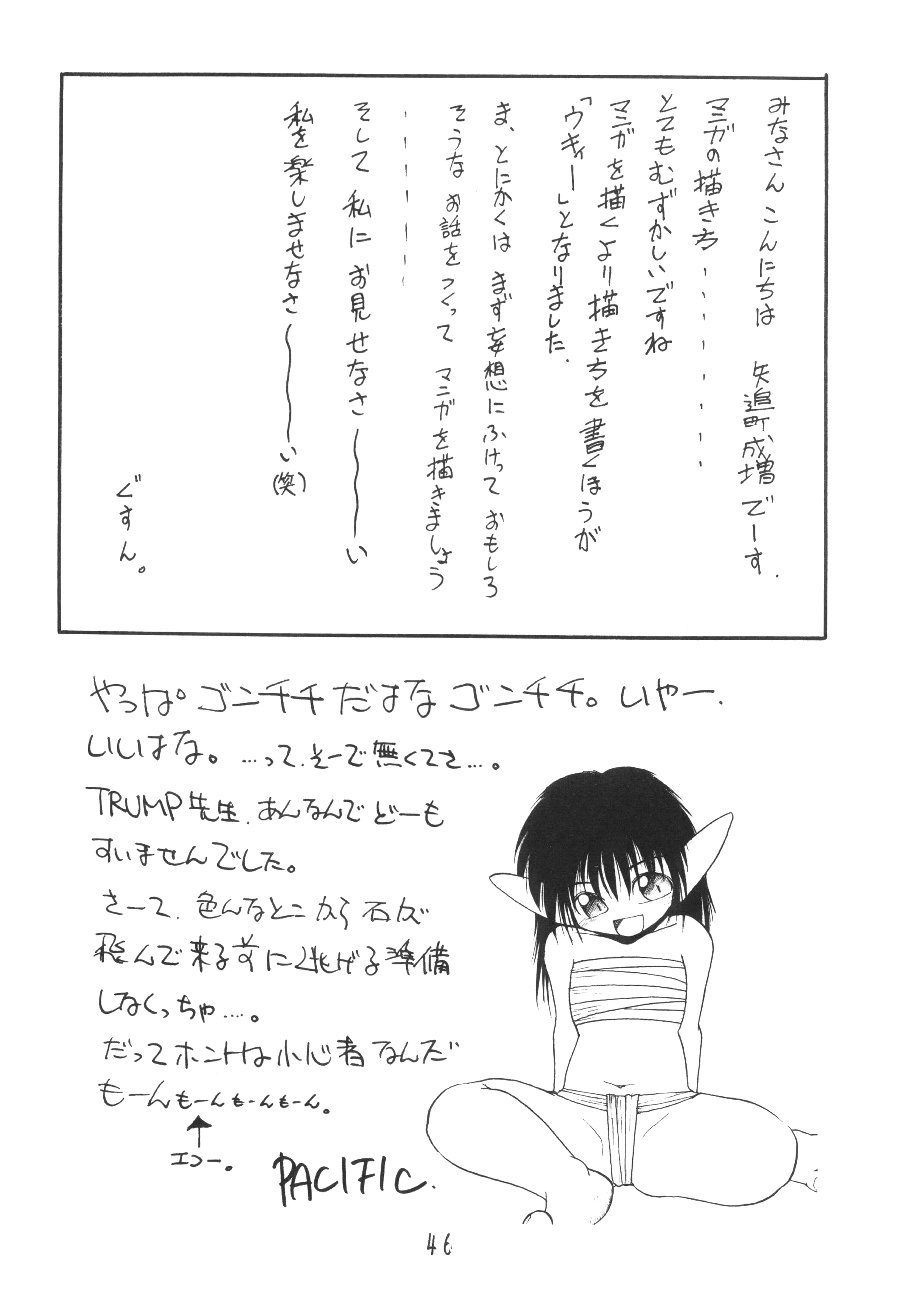 みなさん こんにちは 矢追町成増でーす.
マンガの描き方、、、、、、、、
とてもむずかしいですね
マンガを描くより描き方を書くほうが
「ウキィー」となりました.
ま、とにかくは まず妄想にふけって おもしろ
そうな お話をつくって マンガを描きましょう
、、、、、、、
そして 私に お見せなさ〜〜〜い
私を楽しませなさ〜〜〜い(笑)
ぐすん。
やっぱ。ゴンチチだはな ゴンチチ。いやー.
いいはな。…って、そーで無くてさ…。
TRUMP先生、あんなんで どーも
すいませんでした。
さーて、色んなとこから石が
飛んで来る前に逃げる準備
しなくっちゃ…。
だってホントは小心者なんだ
もーんもーんもーんもーん。
↑
エコー。
PACIFIC.
46